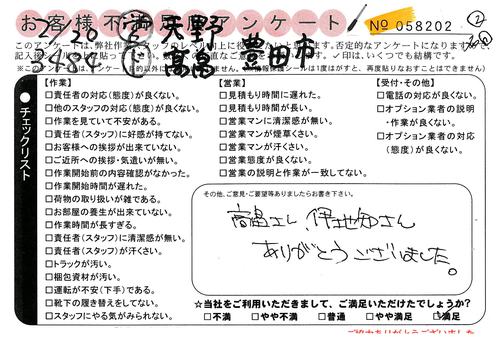 お客様不満足度アンケート
No 058202
2/20 天野
3484 高畠 豊田市
このアンケートは、弊社作業スタッフのレベル向上に
記入後
【作業】
□責任者の対応(態度)が良くない。
□他のスタッフの対応(態度)が良くない。
□作業を見ていて不安がある。
□責任者(スタッフ)に好感が持てない。
□お客様への挨拶が出来ていない。
□ご近所への挨拶・気遣いが無い。
□作業開始前の内容確認がなかった。
□作業開始時間が遅れた。
□荷物の取り扱いが雑である。
□お部屋の養生が出来ていない。
□作業時間が長すぎる。
□責任者(スタッフ)に清潔感が無い。
□責任者(スタッフ)が汗くさい。
□トラックが汚い。
□梱包資材が汚い。
□運転が不安(下手)である。
□靴下の履き替えをしてない。
□スタッフにやる気がみられない。
【営業】
□見積もり時間に遅れた。
□見積もり時間が長い。
□営業マンに清潔感が無い。
□営業マンが煙草くさい。
□営業マンが汗くさい。
□営業態度が良くない。
□営業の説明と作業が一致してない。
【受付・その他】
□電話の対応が良くない。
□オプション業者の説明
・作業が良くない。
□オプション業者の対応
(態度)が良くない。
●チェックリスト
その他、ご意見・ご要望等ありましたらお書き下さい。
高畠さん、伊地知さん
ありがとうございました。
☆当社をご利用いただきまして、ご満足いただけたでしょうか?
□不満 □やや不満 □普通 □やや満足 ☑満足
ご協力ありがとうございました